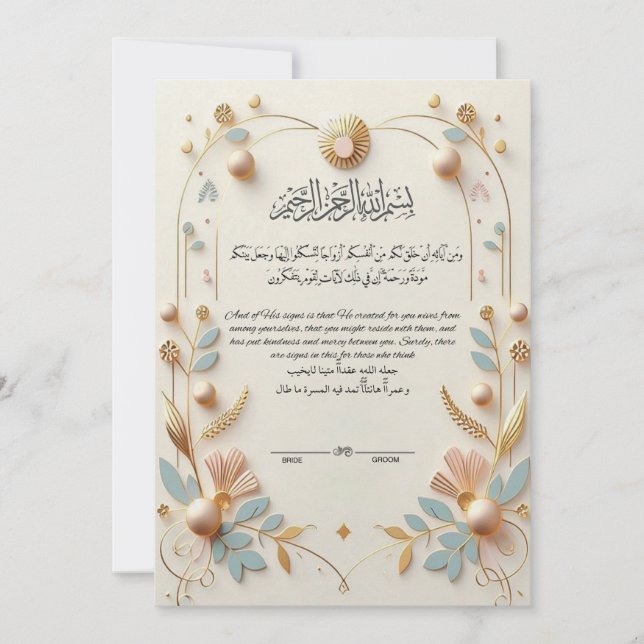 بسم الله الرحمن الرحيم
وَمِنْ آيَاتِهِ أَنْ خَلَقَ لَكُم مِّنْ أَنفُسِكُمْ أَزْوَاجًا لِّتَسْكُنُوا إِلَيْهَا وَجَعَلَ بَيْنَكُم
مَّوَدَّةً وَرَحْمَةً إِنَّ فِي ذَٰلِكَ لَآيَاتٍ لِّقَوْمٍ يَتَفَكَّرُونَ
And of His signs is that He created for you wives from
among yourselves, that you might reside with them, and
has put kindness and mercy between you. Surely, there
are signs in this for those who think
جعله اللمه عقداً متينا لايخيب
وعمراً هانئاً تمد فيه المسرة ما طال
BRIDE GROOM